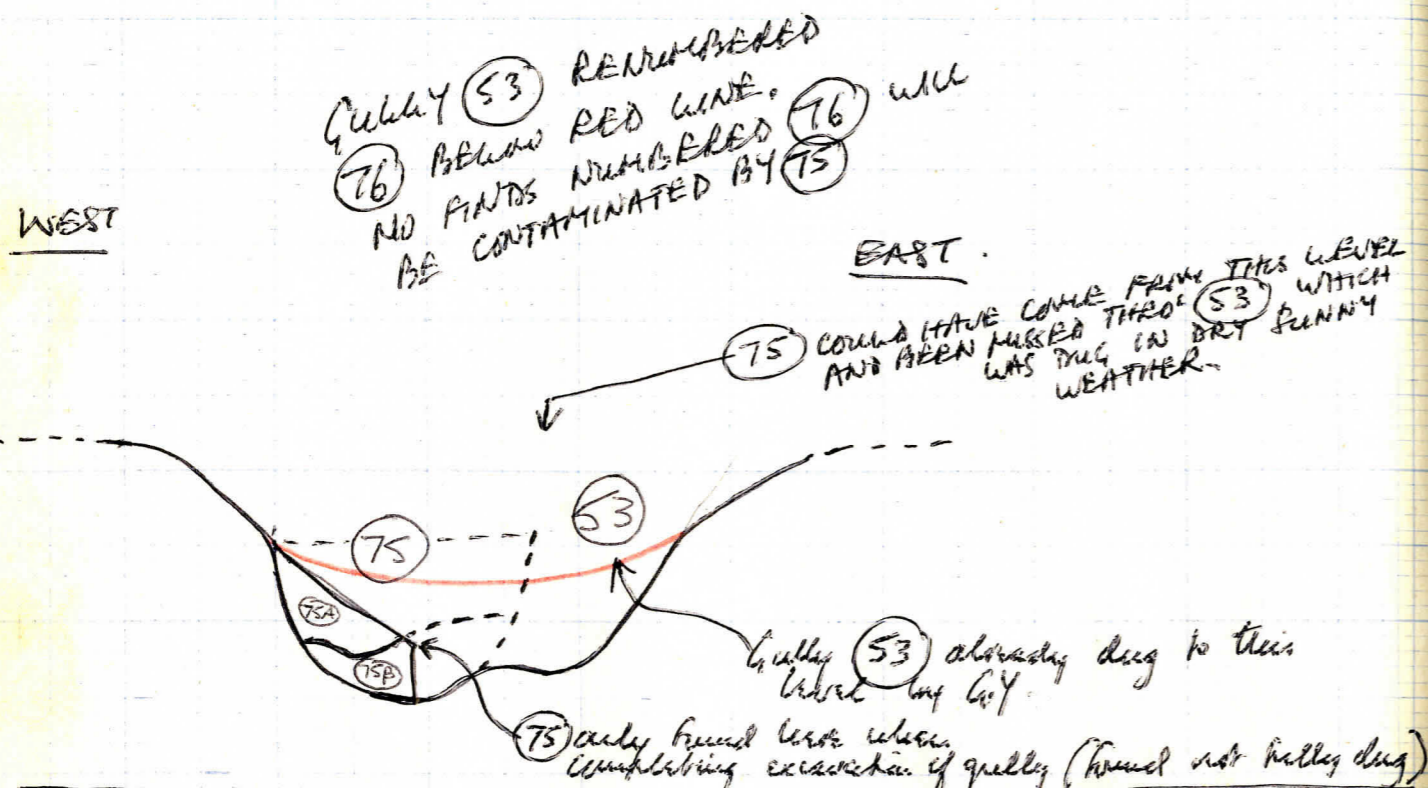 GULLY 53 RENUMBERED
76 BELOW RED LINE.
NO FINDS NUMBERED 76 WILL
BE CONTAMINATED BY 75
WEST
EAST.
75 COULD HAVE COME FROM THIS LEVEL
AND BEEN MISSED THRO' 53 WHICH
WAS DUG IN DRY SUNNY
WEATHER.
53
75
75A
75B
Gully 53 already dug to this
level by G.Y.
75 only found here when
completing excavation of gully (found not fully dug)